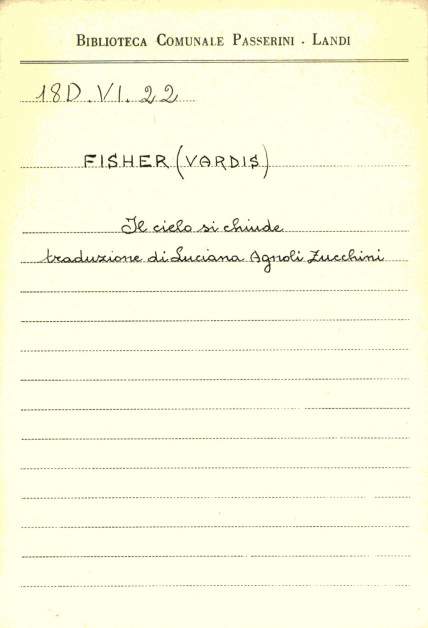 BIBLIOTECA COMUNALE PASSERINI - LANDI
18D.VI.22
FISHER (VARDIS)
Il cielo si chiude
traduzione di Luciana Agnoli Zucchini